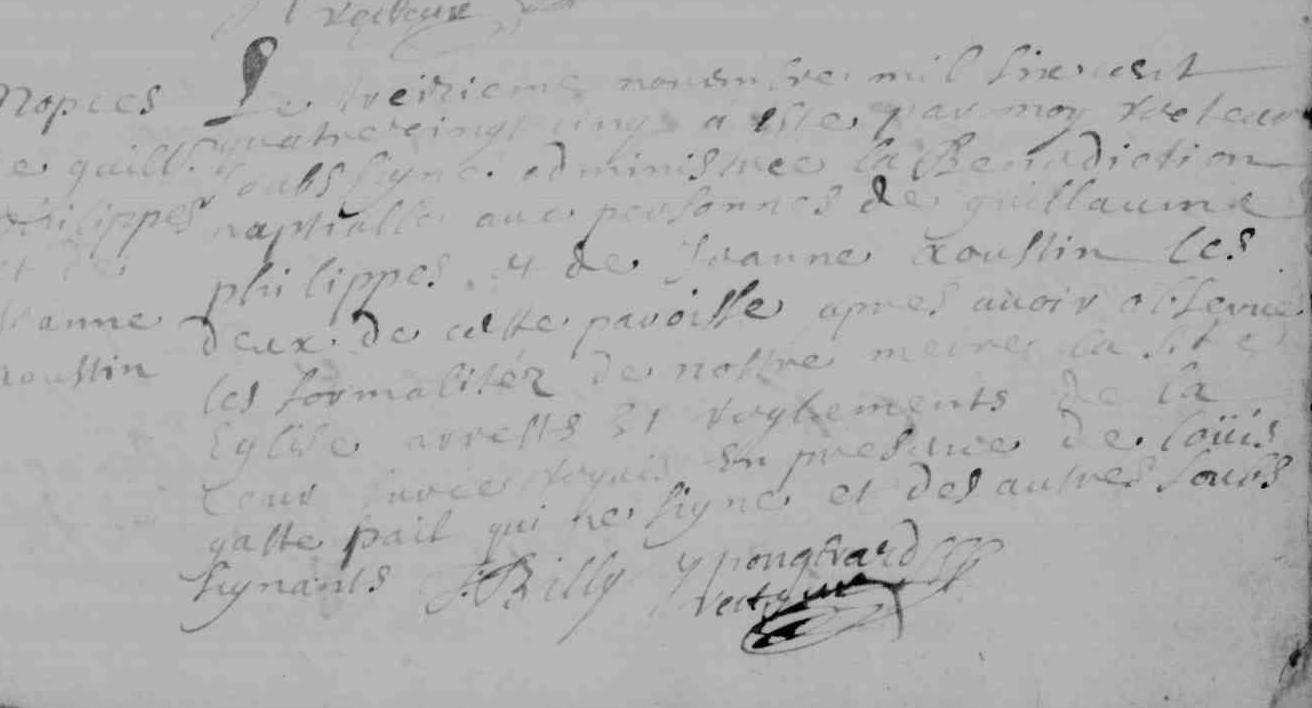 recteur
nopces
de guill.
philippes
et de
jeanne
roustin
Le treizieme novembre mil six cent
quatre vingt cinq a este par moy recteur
soubs signe administree la Benediction
naptialle aux personnes de guillaume
philippes et de Jeanne roustin les
deux de cette paroisse apres avoir observe
les formalitez de nostre meire la ste
Eglise arrests et reglements de la
cour en presance de loüis
gatte pail qui ne signe et des autres soubs
signants Billy
recteur